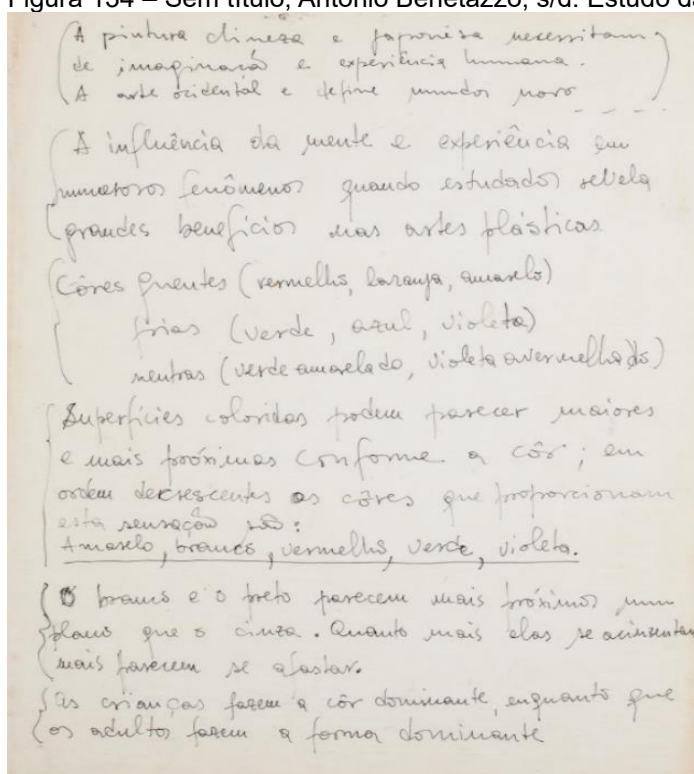 Figura 134 – Sem título, Antonio Benetazzo, s/d. Estudo da
A pintura chineza e japonêsa necessitam
de imaginação e experiência humana.
A arte ocidental e define mundos novo
A influência da mente e experiência em
numerosos fenômenos quando estudados revela
grandes benefícios nas artes plásticas
Côres quentes (vermelho, laranja, amarelo)
frias (verde, azul, violeta)
neutras (verde amarelado, violeta avermelhado)
Superfícies coloridas podem parecer maiores
e mais próximas conforme a côr; em
ordem decrescentes as côres que proporcionam
esta sensação são:
Amarelo, branco, vermelho, verde, violeta.
O branco e o preto parecem mais próximos num
plano que o cinza. Quanto mais elas se acinzentam
mais parecem se afastar.
As crianças fazem a côr dominante, enquanto que
os adultos fazem a forma dominante